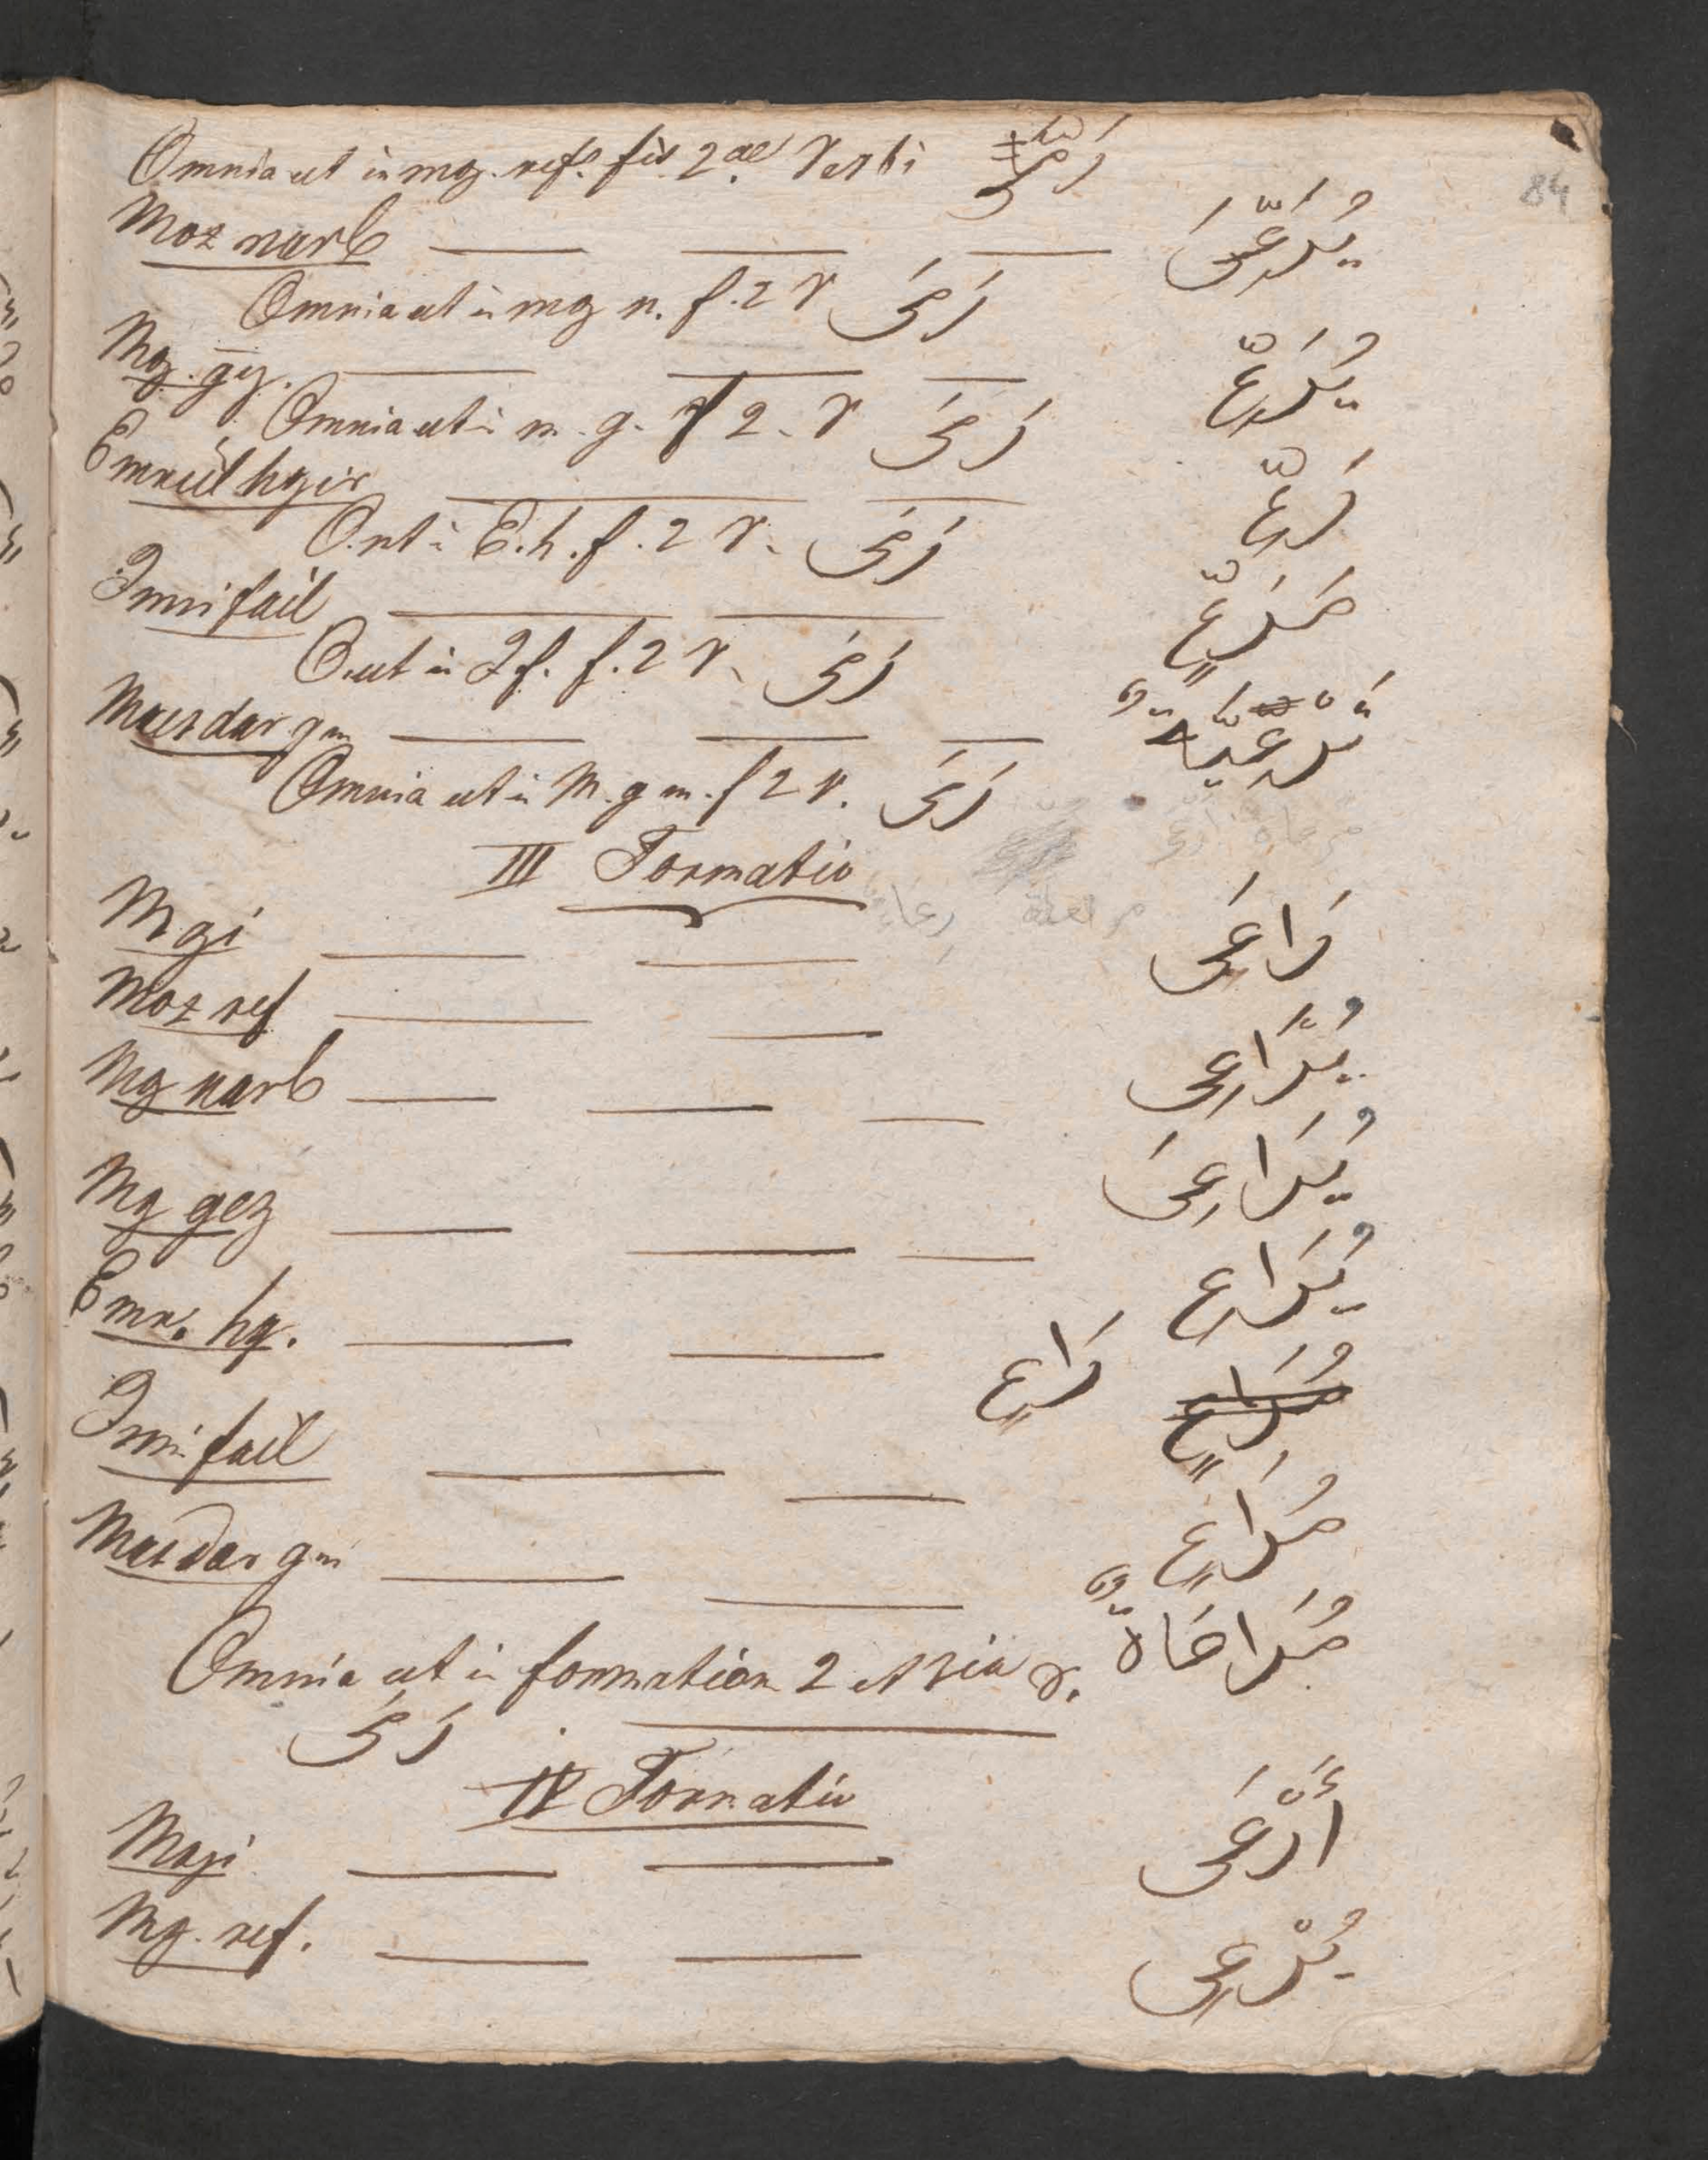 84
Omnia ut in mg. ref. fis 2ae Verbi رَمَى
Moz narb يُرَعِّىَ
Omnia ut in mg n. f. 2 V رَمَى
Mg. gz. يُرَعِّ
Omnia ut in m. g. f 2. V رَمَى
Emrul hyir رَعِّ
O. ut in E. h. f. 2 V. رَمَى
Ismi fail مُرَعٍّ
O. ut in I f. f. 2 V. رَمَى
Masdar gm تَرْعِيَةٌ
Omnia ut in M. g m. f 2 V. رَمَى
III Formatio
Mgi رَاعَى
Moz ref يُرَاعِى
Mg narb يُرَاعِىَ
Mg gez يُرَاعِ
Emr. hg. رَاعِ
Ismi fail مُرَاعٍ
Masdar gm مُرَاعَاةٌ
Omnia ut in formation 2 et 3ia V.
رَمَى
IV Formatio
Magi أَرْعَى
Mg. ref. يُرْعِى